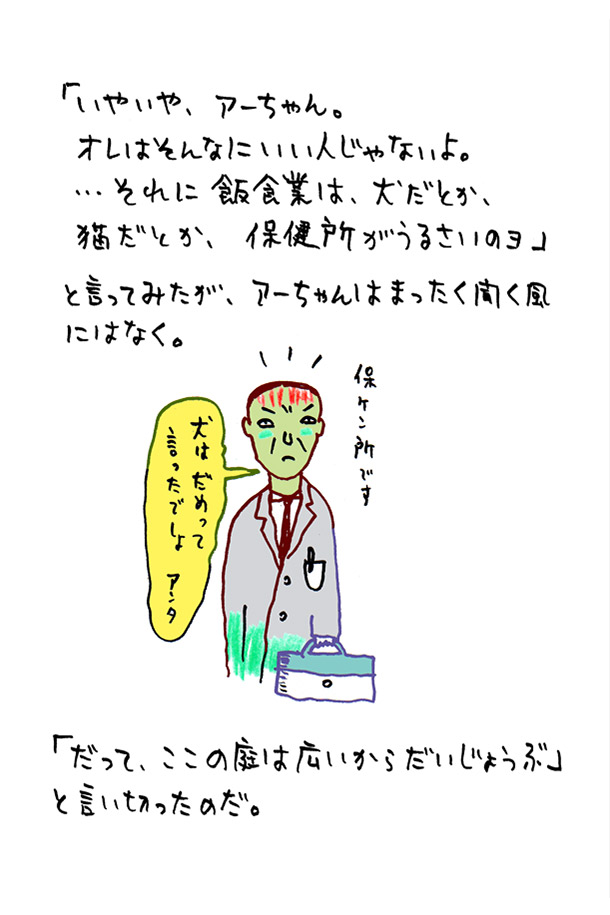 「いやいや、アーちゃん。
オレはそんなにいい人じゃないよ。
…それに飯食業は、犬だとか、
猫だとか、保健所がうるさいのヨ」
と言ってみたが、アーちゃんはまったく聞く風
にはなく。
保ケン所です
犬はだめって
言ったでしょ
アンタ
「だって、ここの庭は広いからだいじょうぶ」
と言い切ったのだ。